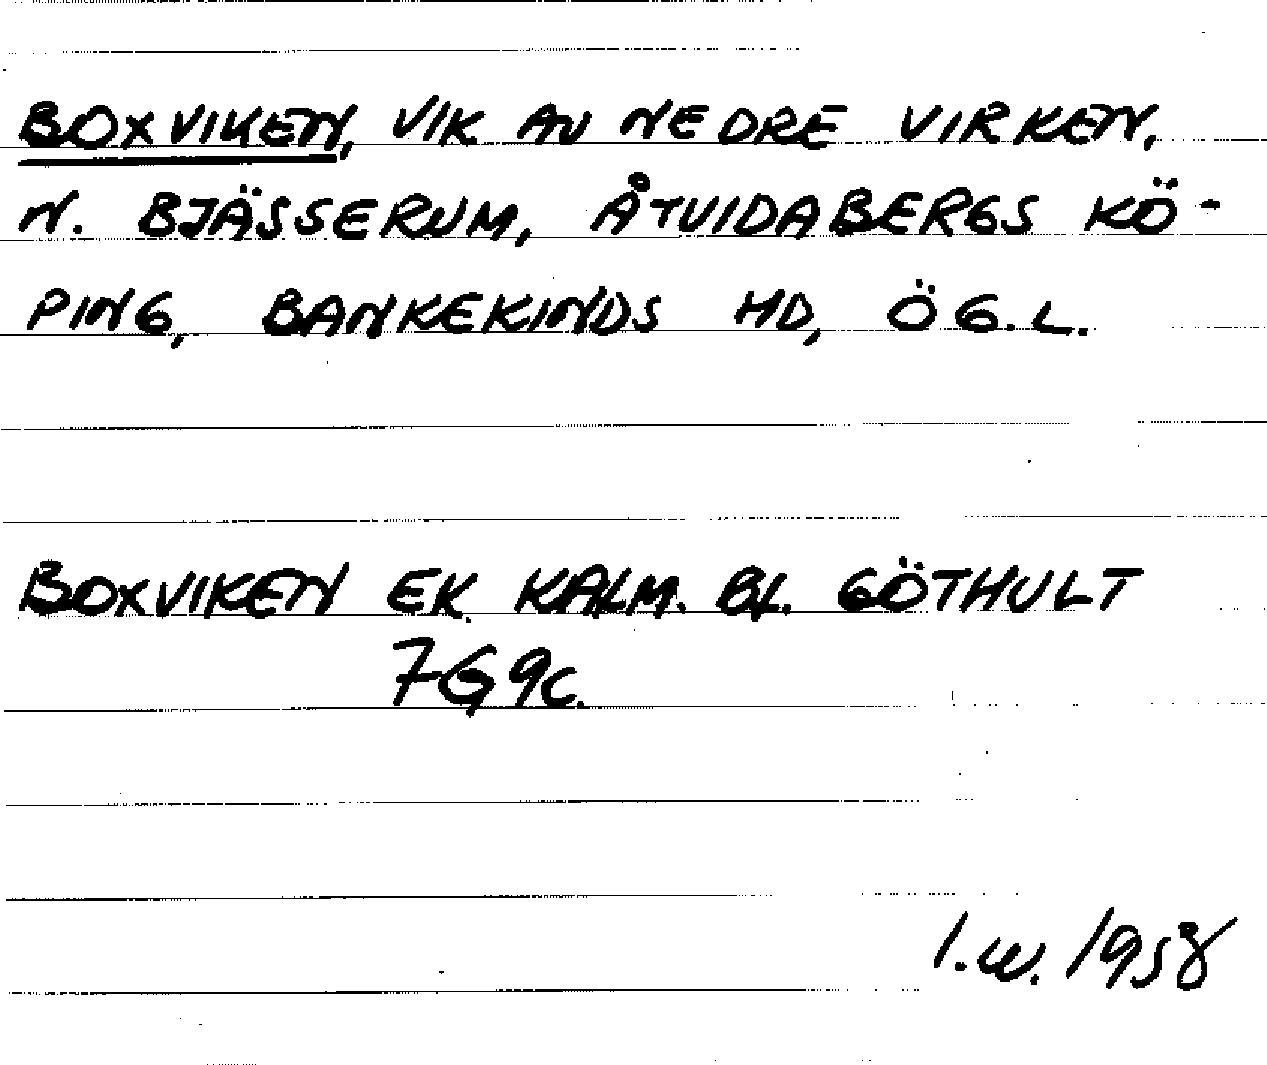 BOXVIKEN, VIK AV NEDRE VIRKEN,
N. BJÄSSERUM, ÅTVIDABERGS KÖ-
PING, BANKEKINDS HD, ÖG. L.
BOXVIKEN EK. KALM. BL. GÖTHULT
7G9c.
I.W. 1958